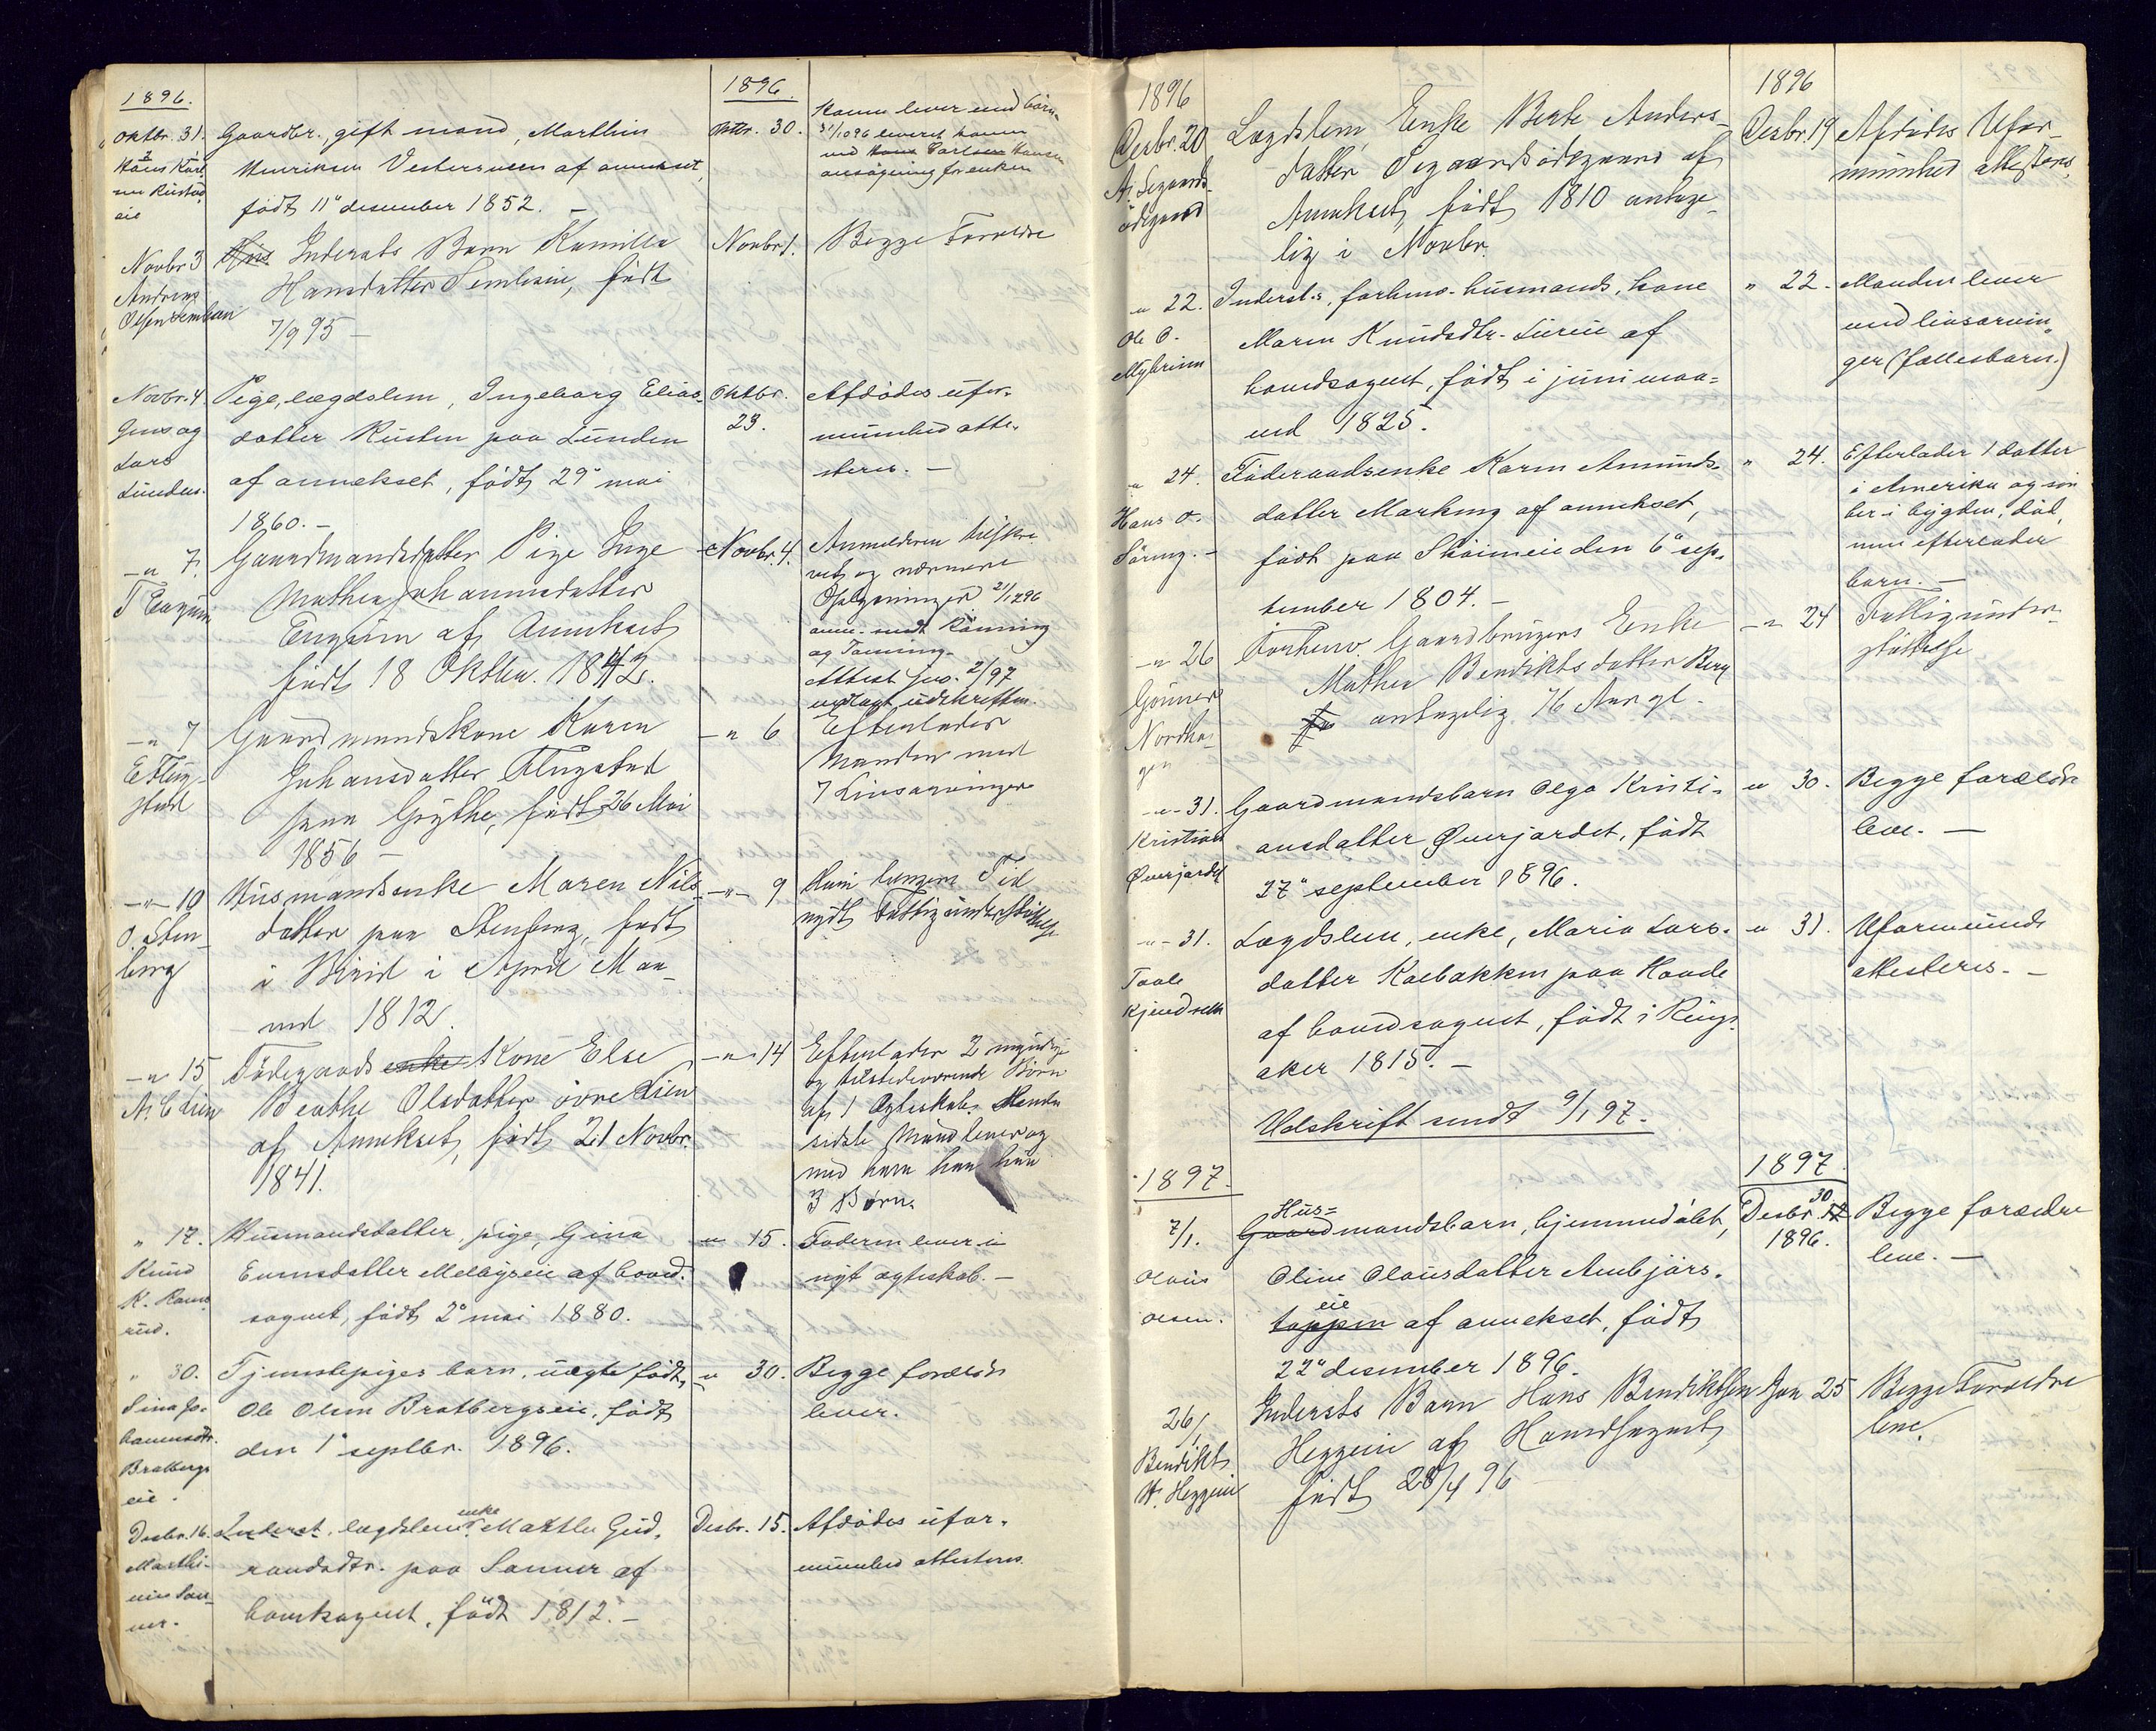 1896.
Oktbr. 31.
Hans Karl
sen Rustad
eie
Gaardbr., gift mand, Marthin
Henriksen Vestersveen af annekset,
født 11" desember 1852. –
1896.
Oktbr. 30.
Konen lever med børn
31/10 96 leveret konen
ved Hans Karlsen
ansøgning for enken
Novbr 3
Andreas
Olsen Semleien
Inderests Barn Kamilla
Hansdatter Semleeie, født
7/9 95 –
Novbr 1.
Begge Forældre
Novbr. 4.
Jens og
Lars
Lunden.
Pige, lægdslem, Ingeborg Elias-
datter Rusten paa Lunden
af annekset, født 29" mai
1860. –
Oktbr.
23.
Afdødes ufor-
muenhed atte-
steres. –
–"– 7.
T Engum
Gaardmandsdatter Pige Inge
Mathea Johannesdatter
Engum af Annekset
født 18 Oktbr. 1842.
Novbr. 4.
Anmelderen tilskre-
vet og nærmere
Oplysninger 21/12 96
og
Attest 2/97
vedlagt udskriften.
–"– 7
E Flug-
stad
Gaardmandskone Karen
Johansdatter Flugstad
paa Grythe, født 26 Mai
1856 –
–"– 6
Efterlader
Manden med
7 Livsarvinger
–"– 10
O. Sten-
berg
Husmandsenke Maren Nils-
datter paa Stenberg, født
i Birid i April Maa-
ned 1812.
–"– 9
Huni længere Tid
nydt Fattigunderstøttelse
–"– 15
A. C Lien
Føderaads enke Kone Else
Beathe Olsdatter øvre Lien
af Annekset, født 21 Novbr.
1841.
–"– 14
Efterlader 2 myndige
og tilstedeværende Børn
af 1 Ægteskab. Hendes
sidste Mand lever og
med ham har hun
3 Børn.
" 17.
Knud
K. Rams
rud.
Husmandsdatter, pige, Gina
Evensdatter Melbyeie af hoved-
sognet, født 2" mai 1880.
–"– 15.
Faderen lever i
nyt ægteskab. –
" 30.
Sina Jo-
hannesdtr.
Bratbergs
eie.
Tjenestepiges barn, uægte født,
Ole Olsen Bratbergseie, født
den 1" septbr. 1896.
" 30.
Begge forældre
lever.
Desbr. 16.
Marthi-
nus San-
ner.
Inderst, lægdslem, enke Marthe Gud-
randsdtr. paa Sanner af
hovedsognet, født 1812. –
Desbr. 15.
Afdødes ufor-
muenhed attesteres.
1896
Desbr. 20
A. Segaards-
ødegaard
Lægdslem, Enke Berte Anders-
datter Segaardsødegaard af
Annekset, født 1810 antage-
lig i Novbr.
1896
Desbr. 19
Afdødes Ufor-
muenhed attesteres.
–"– 22.
Ole O.
Mybrenn
Inderst-, forhenv. husmands, kone
Maren Knudsdtr. Lureie af
hovedsognet, født i juni maa-
ned 1825.
" 22.
Manden lever
med livsarvin-
ger (fællesbarn.)
" 24.
Hans O.
Föderaadsenke Karen Amunds-
datter Markeng af annekset,
født paa Skoimeie den 6" sep-
tember 1804. –
" 24.
Efterlader 1 datter
i Amerika og søn
ner i bygden, død,
men efterlader
barn. –
–"– 26
Gunner
Nordha-
gen
Forhenv. Gaardbrugers Enke
Mathea Bendiktsdatter Berg
antagelig 76 Aar gl.
–"– 24
Fattigunder-
støttelse
–"– 31.
Kristian
Øverjordet
Gaardmandsbarn Olga Kristi-
ansdatter Øverjordet, født
27" september 1896.
" 30.
Begge forældre
leve. –
–"– 31.
Taale
Kjendseth
Lægdslem, enke, Maria Lars-
datter Kalbakken paa Kaade
af hovedsognet, født i Rings-
aker 1815. –
" 31.
Uformuende
attesteres. –
Udskrift sendt 9/1 97.
1897.
7/1.
Olaus
Olsen.
Hus=
Gaardmandsbarn, hjemmedøbt,
Oline Olausdatter Ambjørs-
eie
toppen af annekset, født
22" desember 1896.
1897.
30
Desbr. 17
1896.
Begge forældre
leve. –
26/1
Bendikt
H. Heggeie
Inderests Barn Hans Bendiktsen
Heggeie af Hovedsognet
født 28/4 96
Jan 25
Begge Forældre
leve.